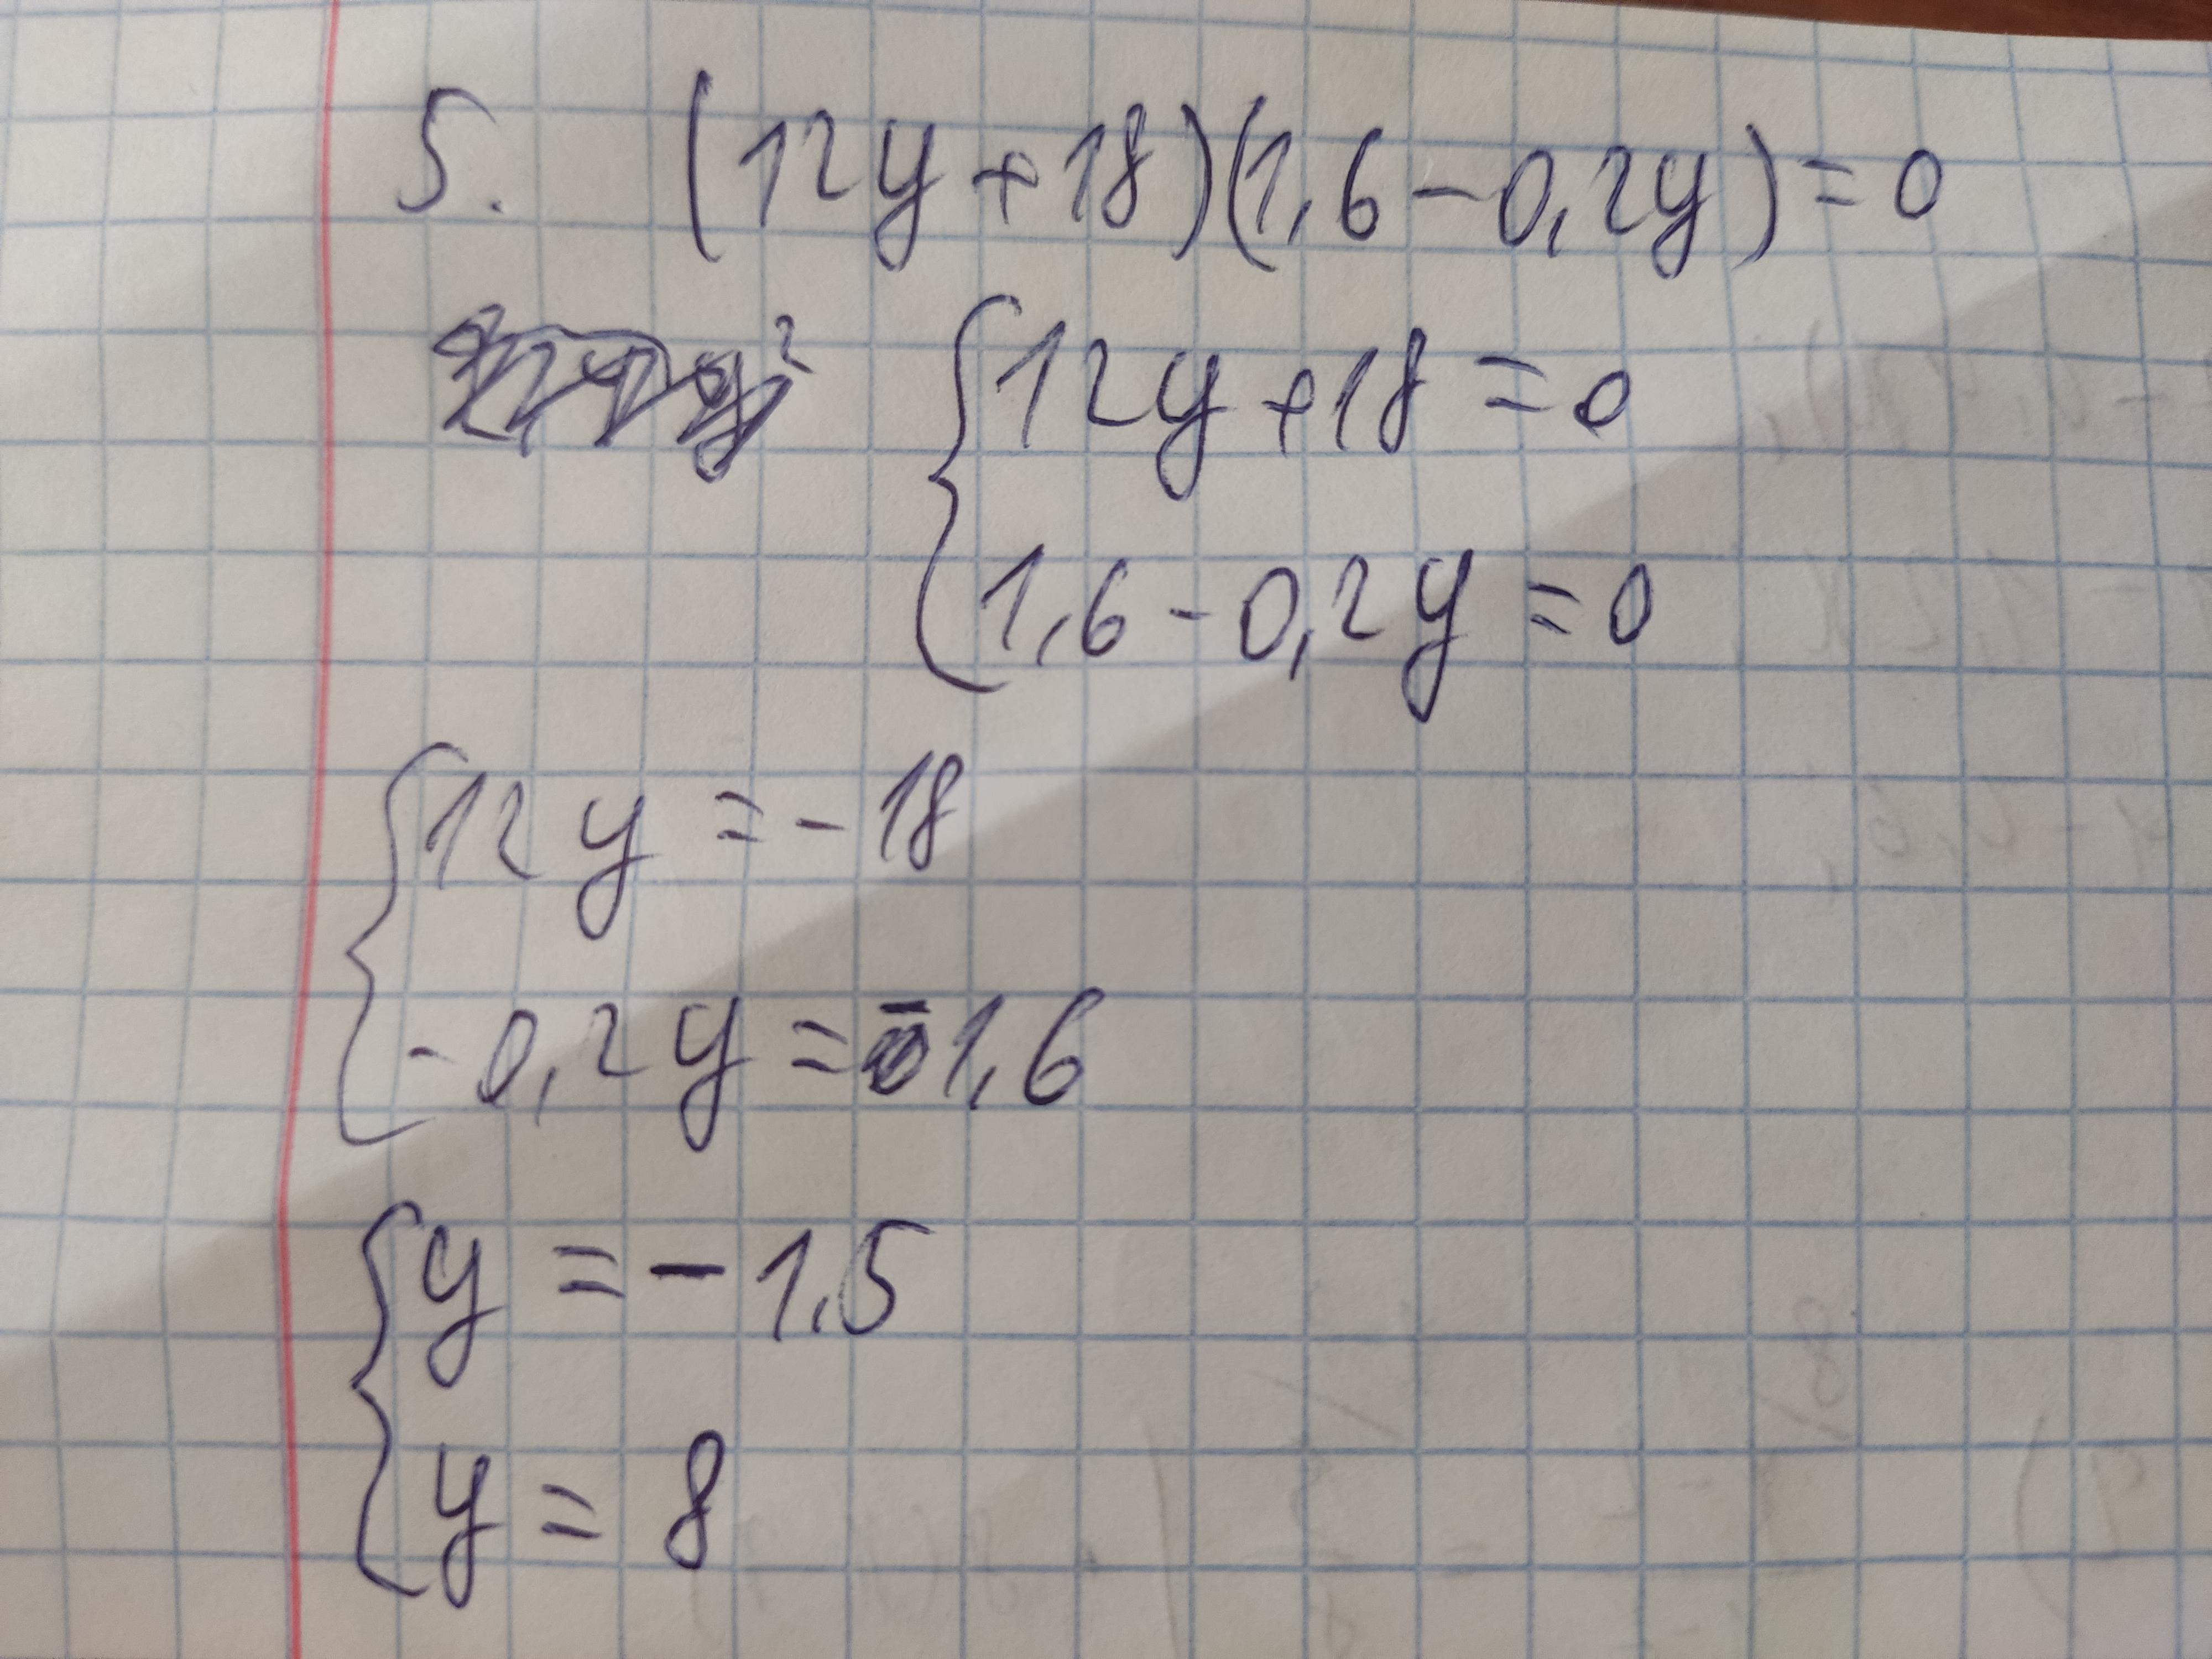 5. (12y+18)(1,6-0,2y)=0
{12y+18=0
{1,6-0,2y=0
{12y=-18
{-0,2y=-1,6
{y=-1,5
{y=8